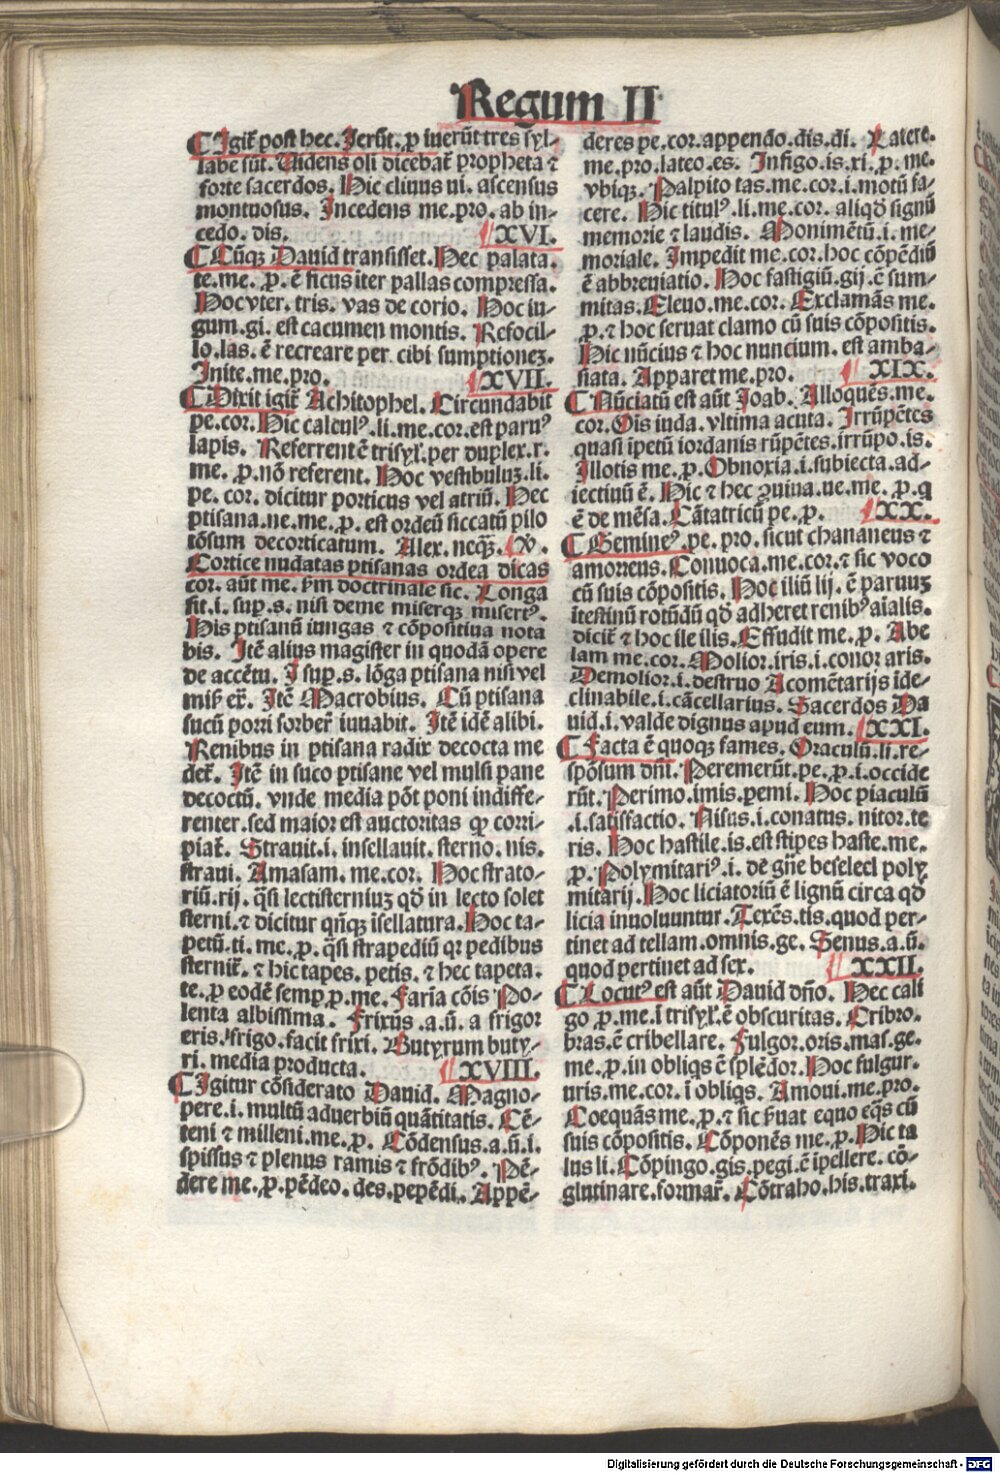 Regum II
Igit̄ post hec. Jerūt. ꝓ iuerūt tres syl-
labe sūt. Uidens oli dicebat̄ propheta ⁊
forte sacerdos. Hic cliuus ui. ascensus
montuosus. Incedens me.pro. ab in-
cedo. dis. XVI.
Cūqꝫ Dauid transisset. Hec palata.
te.me. ꝓ. ē ficus iter pallas compressa.
Hoc vter. tris. vas de corio. Hoc iu-
gum.gi. est cacumen montis. Refocil-
lo.las. ē recreare per cibi sumptioneꝫ.
Inite.me.pro. XVII.
Dixit igit̄ Achitophel. Circundabit
pe.cor. Hic calculꝰ.li.me.cor.est paruꝰ
lapis. Referrent ē trisył.per duplex.r.
me. ꝓ. nō referent. Hoc vestibuluꝫ.li.
pe. cor. dicitur porticus vel atriū. Hec
ptisana.ne.me. ꝓ. est ordeū siccatū pilo
tōsum decorticatum. Alex. neq̄ꝫ. ꝟ.
Cortice nudatas ptisanas ordea dicas
cor. aūt me. ẜm doctrinale sic. Longa
fit.i. suꝑ.s. nisi deme miserqꝫ misertꝰ.
His ptisanū iungas ⁊ cōpositiua nota
bis. Itē alius magister in quodā opere
de accētu. I suꝑ.s. lōga ptisana nisi vel
Itē Macrobius. Cū ptisana
sucū porri sorber̄ iuuabit. Itē idē alibi.
Renibus in ptisana radix decocta me
det̄. Itē in suco ptisane vel mulsi pane
decoctū. vnde media pōt poni indiffe-
renter.sed maior est auctoritas ꝙ corri-
piat̄. Strauit.i. insellauit. sterno. nis.
straui. Amasam. me.cor. Hoc strato-
riū.rij. q̄si lectisterniuꝫ qd̄ in lecto solet
sterni.⁊ dicitur qn̄qꝫ īsellatura. Hoc ta-
petū.ti. me. ꝓ. q̄si strapediū qꝛ pedibus
sternit̄. ⁊ hic tapes. petis. ⁊ hec tapeta.
te. ꝓ eodē semꝑ ꝓ.me. Faria cōis Po-
lenta albissima. Frixus .a.ū. a frigor
eris. frigo. facit frixi. Butyrum buty-
ri. media producta. XVIII.
Igitur cōsiderato Dauid. Magno-
pere.i. multū aduerbiū quātitatis. Cē-
teni ⁊ milleni.me. ꝓ. Cōdensus.a.ū.i.
spissus ⁊ plenus ramis ⁊ frōdibꝰ. Pē-
dere me. ꝓ. pēdeo. des.pepēdi. Appē-
deres pe.cor.appendo.dis.di. Patere.
me.pro.lateo.es. Infigo.is.xi. ꝓ. me.
vbiqꝫ. Palpito tas.me.cor.i.motū fa-
cere. Hic titulꝰ.li.me.cor. aliqd̄ signū
memorie ⁊ laudis. Monimētū.i. me-
moriale. Impedit me.cor.hoc cōpēdiū
ē abbreuiatio. Hoc fastigiū.gij.ē sum-
mitas. Eleuo.me.cor. Exclamās me.
ꝓ.⁊ hoc seruat clamo cū suis cōpositis.
Hic nūcius ⁊ hoc nuncium. est amba-
siata. Apparet me.pro. XIX.
Nūciatū est aūt Joab. Alloquēs.me.
cor. Oīs iuda. vltima acuta. Irrūpētes
quasi īpetū iordanis rūpētes.irrūpo.is.
Illotis me. ꝓ. Obnoxia.i.subiecta.ad-
iectiuū ē. Hic ⁊ hec ꝯuiua.ue.me. ꝓ.q
ē de mēsa. Cātatricū pe. ꝓ. XX.
Semineꝰ.pe.pro. sicut chananeus ⁊
amorreus. Conuoca.me.cor.⁊ sic voco
cū suis cōpositis. Hoc iliū lij. ē paruuꝫ
ītestinū rotūdū qd̄ adheret renibꝰ aīalis.
dicit̄ ⁊ hoc ile ilis. Effudit me. ꝓ. Abe
lam me.cor. Molior.iris.i.conor aris.
Demolior.i.destruo A comētarijs īde-
clinabile.i.cācellarius. Sacerdos Da
uid.i.valde dignus apud eum. XXI.
Facta ē quoqꝫ fames. Oraculū.li.re-
spōsum dn̄i. Peremerūt.pe. ꝓ.i.occide
rūt. Perimo.imis.pemi. Hoc piaculū
.i.satisfactio. Nisus.i.conatus. nitor.te
ris. Hoc hastile.is.est stipes haste.me.
ꝓ. Polymitariꝰ.i. de gn̄e beseleel poly
mitarij. Hoc liciatoriū ē lignū circa qd̄
licia inuoluuntur. Texēs.tis.quod per-
tinet ad tellam.omnis.ge. Senus.a.ū.
quod pertinet ad sex. XXII.
Locutꝰ est aūt Dauid dn̄o. Hec cali
go ꝓ.me.ī trisył.ē obscuritas. Cribro.
bras.ē cribellare. Fulgor.oris.mas.ge.
me. ꝓ.in obliqs ē splēdor. Hoc fulgur.
uris.me.cor.ī obliqs. Amoui.me.pro.
Coequās me. ꝓ.⁊ sic ẜuat equo eqs cū
suis cōpositis. Cōponēs me. ꝓ. Hic ta
lus li. Cōpingo.gis.pegi.ē īpellere.cō-
glutinare.formar̄. Cōtraho.his.traxi.
Digitalisierung gefördert durch die Deutsche Forschungsgemeinschaft - DFG